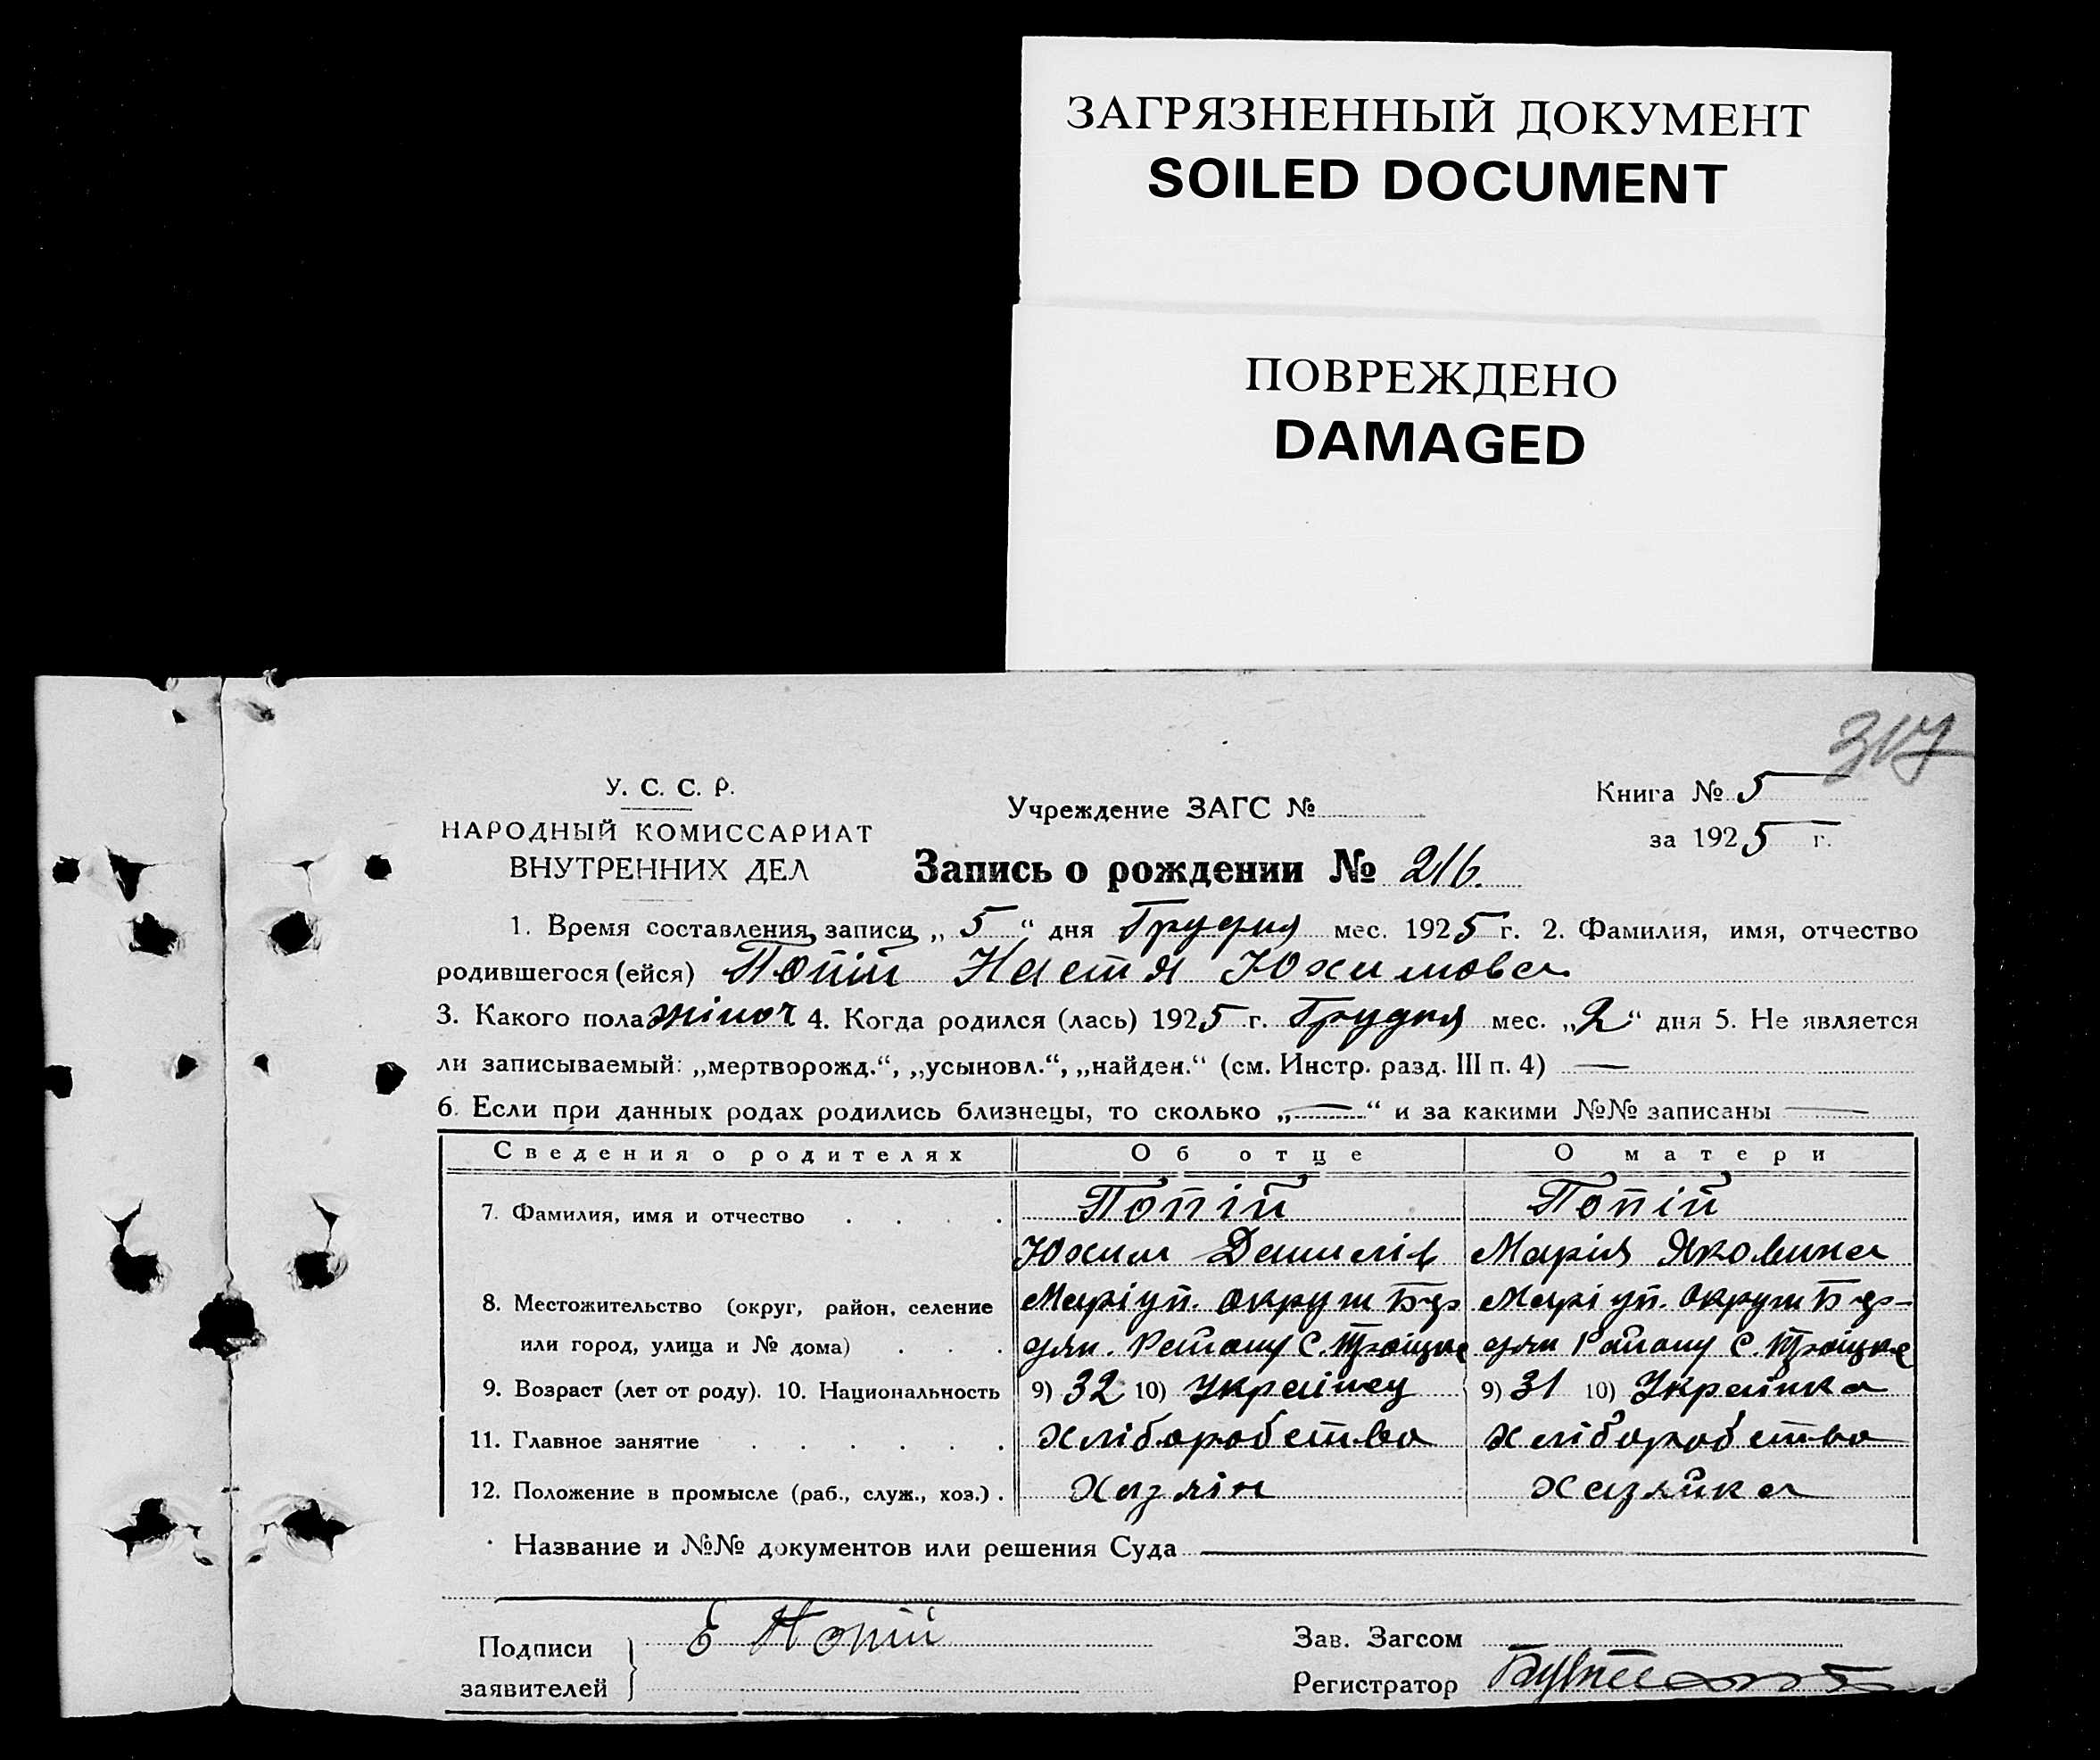 ЗАГРЯЗНЕННЫЙ ДОКУМЕНТ
SOILED DOCUMENT
ПОВРЕЖДЕНО
DAMAGED
317
У. С. С. Р.
НАРОДНЫЙ КОМИССАРИАТ
ВНУТРЕННИХ ДЕЛ
Учреждение ЗАГС №
Книга № 5
за 1925 г.
Запись о рождении № 216.
1. Время составления записи „ 5 “ дня Грудня мес. 1925 г. 2. Фамилия, имя, отчество
родившегося (ейся) Попій Настя Юхимовна
3. Какого пола жіноч 4. Когда родился (лась) 1925 г. Грудня мес. „2“ дня 5. Не является
ли записываемый: „мертворожд.“, „усыновл.“, „найден.“ (см. Инстр. разд. III п. 4) —
6. Если при данных родах родились близнецы, то сколько „—“ и за какими №№ записаны —
Сведения о родителях Об отце О матери
7. Фамилия, имя и отчество . . . . Попій Попій
Юхим Данилів Марія Яковина
8. Местожительство (округ, район, селение Маріуп. округи Бер Маріуп. округи Бер-
или город, улица и № дома) . . . дян. Району С. Троіцке дян Району С. Троіцке
9. Возраст (лет от роду). 10. Национальность 9) 32 10) Українец 9) 31 10) Українка
11. Главное занятие . . . . . . Хліборобство Хліборобство
12. Положение в промысле (раб., служ., хоз.) . Хазяін Хазяйка
Название и №№ документов или решения Суда
Подписи
заявителей
Е Попій
Зав. Загсом
Регистратор